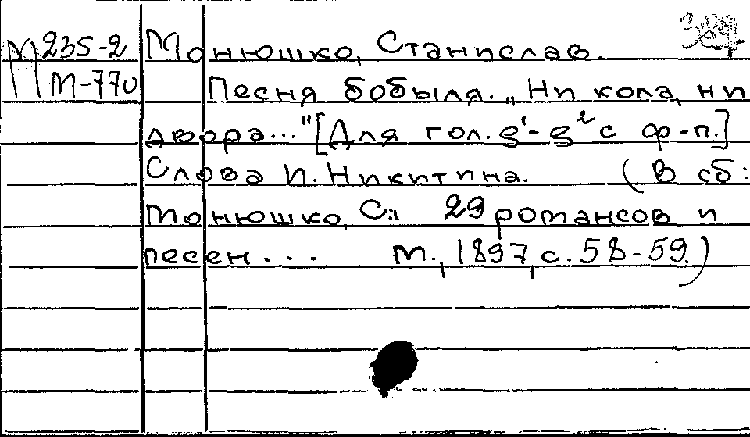 М 235-2
М-770
Монюшко, Станислав.
Песня бобыля. „Ни кола, ни
двора..." [Для гол. g¹-g² с ф-п.]
Слова И. Никитина. (В сб:
Монюшко, С.: 29 романсов и
песен... М., 1897, с. 58-59.)